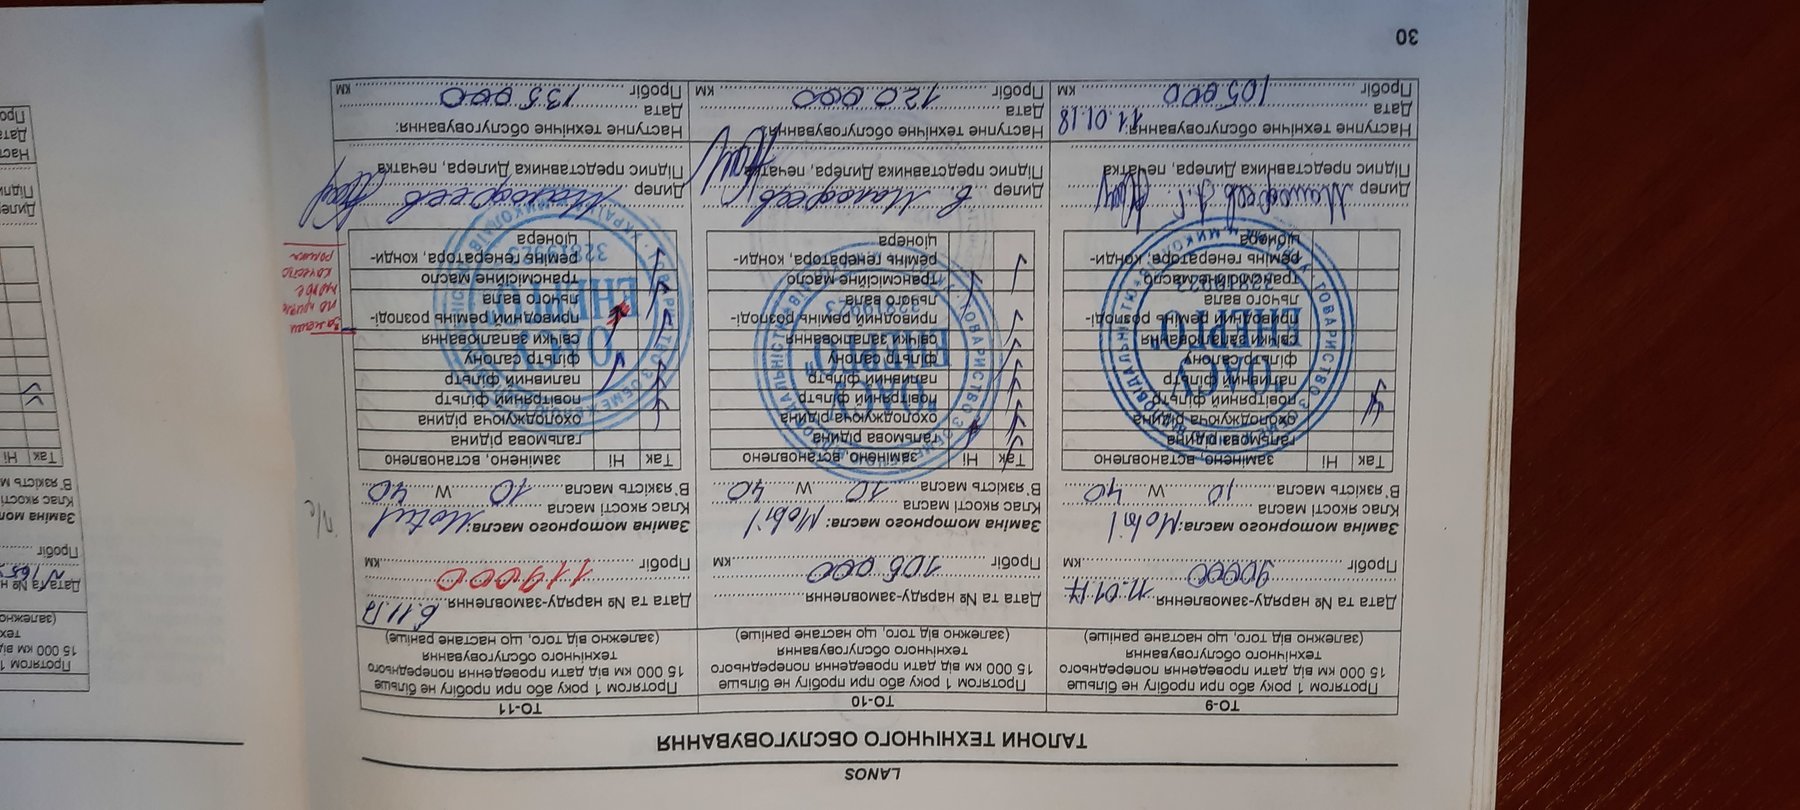 LANOS
ТАЛОНИ ТЕХНІЧНОГО ОБСЛУГОВУВАННЯ
ТО-9
Протягом 1 року або при пробігу не більше
15 000 км від дати проведення попереднього
технічного обслуговування
(залежно від, того, що настане раніше)
Дата та № наряду-замовлення 11.01.17
Пробіг 90000 км
Заміна моторного масла: Mobil
Клас якості масла
В'язкість масла 10 W 40
Так Ні замінено, встановлено
гальмова рідина
охолоджуюча рідина
повітряний фільтр
паливний фільтр
фільтр салону
свічки запалювання
приводний ремінь розподі-
льчого вала
трансмісійне масло
ремінь генератора, конди-
ціонера
ЮАСУ
ЕНЕРГО
32819923
Дилер
Підпис представника Дилера, печатка
Наступне технічне обслуговування:
Дата 11.01.18
Пробіг 105000 км
ТО-10
Протягом 1 року або при пробігу не більше
15 000 км від дати проведення попереднього
технічного обслуговування
(залежно від, того, що настане раніше)
Дата та № наряду-замовлення
Пробіг 105 000 км
Заміна моторного масла: Mobil
Клас якості масла
В'язкість масла 10 W 40
Так Ні замінено, встановлено
гальмова рідина
охолоджуюча рідина
повітряний фільтр
паливний фільтр
фільтр салону
свічки запалювання
приводний ремінь розподі-
льчого вала
трансмісійне масло
ремінь генератора, конди-
ціонера
ЮАСУ
ЕНЕРГО
32819923
Дилер
Підпис представника Дилера, печатка
Наступне технічне обслуговування:
Дата
Пробіг 120 000 км
ТО-11
Протягом 1 року або при пробігу не більше
15 000 км від дати проведення попереднього
технічного обслуговування
(залежно від, того, що настане раніше)
Дата та № наряду-замовлення 6.11.17
Пробіг 119000 км
Заміна моторного масла: Motul
Клас якості масла
В'язкість масла 10 W 40
Так Ні замінено, встановлено
гальмова рідина
охолоджуюча рідина
повітряний фільтр
паливний фільтр
фільтр салону
свічки запалювання
приводний ремінь розподі-
льчого вала
трансмісійне масло
ремінь генератора, конди-
ціонера
ЮАСУ
ЕНЕРГО
32819923
Дилер
Підпис представника Дилера, печатка
Наступне технічне обслуговування:
Дата
Пробіг 135 000 км
30
Протягом 1
15 000 км від
техн
(залежно
Дата та № н
Пробіг
Заміна мо
Клас якості
В'язкість м
Так Ні
Дилер
Підпи
Наст
Дата
Проб